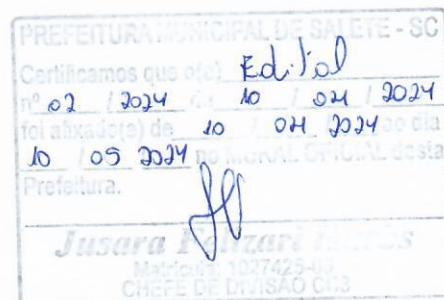 PREFEITURA MUNICIPAL DE SALETE - SC
Certificamos que o(a) Edital
nº 02 / 2024 de 10 / 04 / 2024
foi afixado(a) de 10 / 04 2024 ao dia
10 / 05 2024 no MURAL OFICIAL desta
Prefeitura.
Jusara
Matrícula: 1027425-03
CHEFE DE DIVISÃO CC3